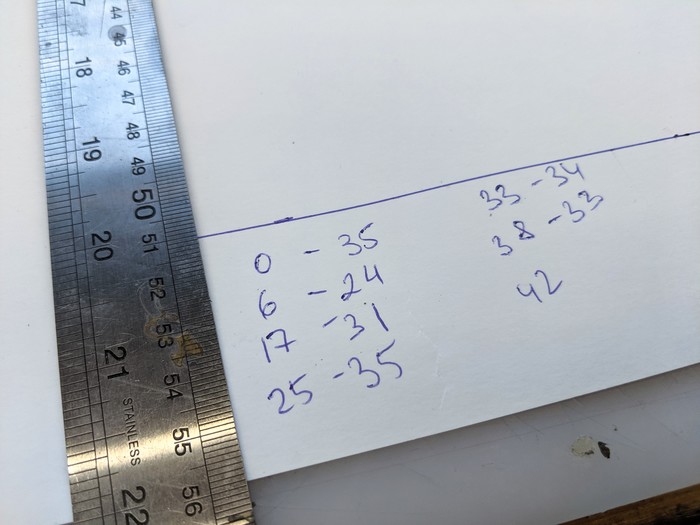 17
18
19
20
21
22
STAINLESS
44
45
46
47
48
49
50
51
52
53
54
55
56
0 - 35
6 - 24
17 - 31
25 - 35
33 - 34
38 - 33
42